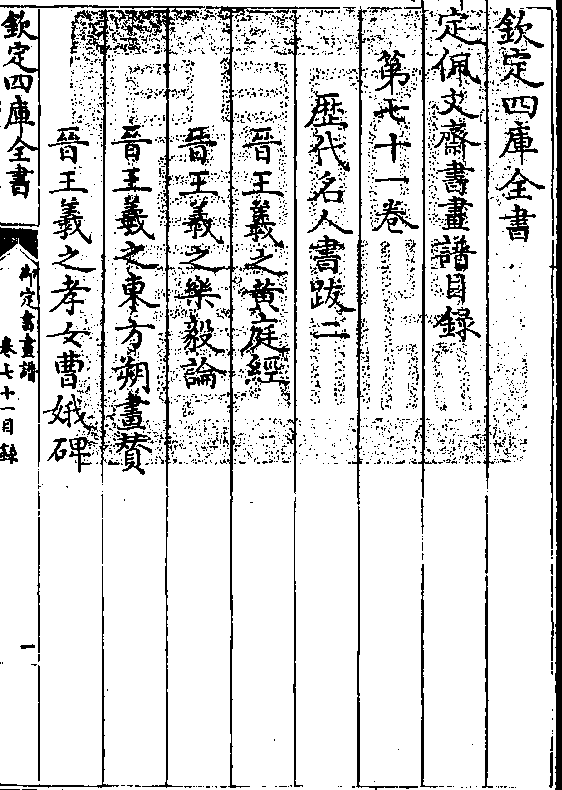 欽定四庫全書
定佩文齋書畫譜目錄
第七十一卷
歷代名人書跋二
晉王羲之黃庭經
晉王羲之樂毅論
晉王羲之東方朔畫賛
晉王羲之孝女曹娥碑
欽定四庫全書
御定書畫譜
卷七十一目錄
一